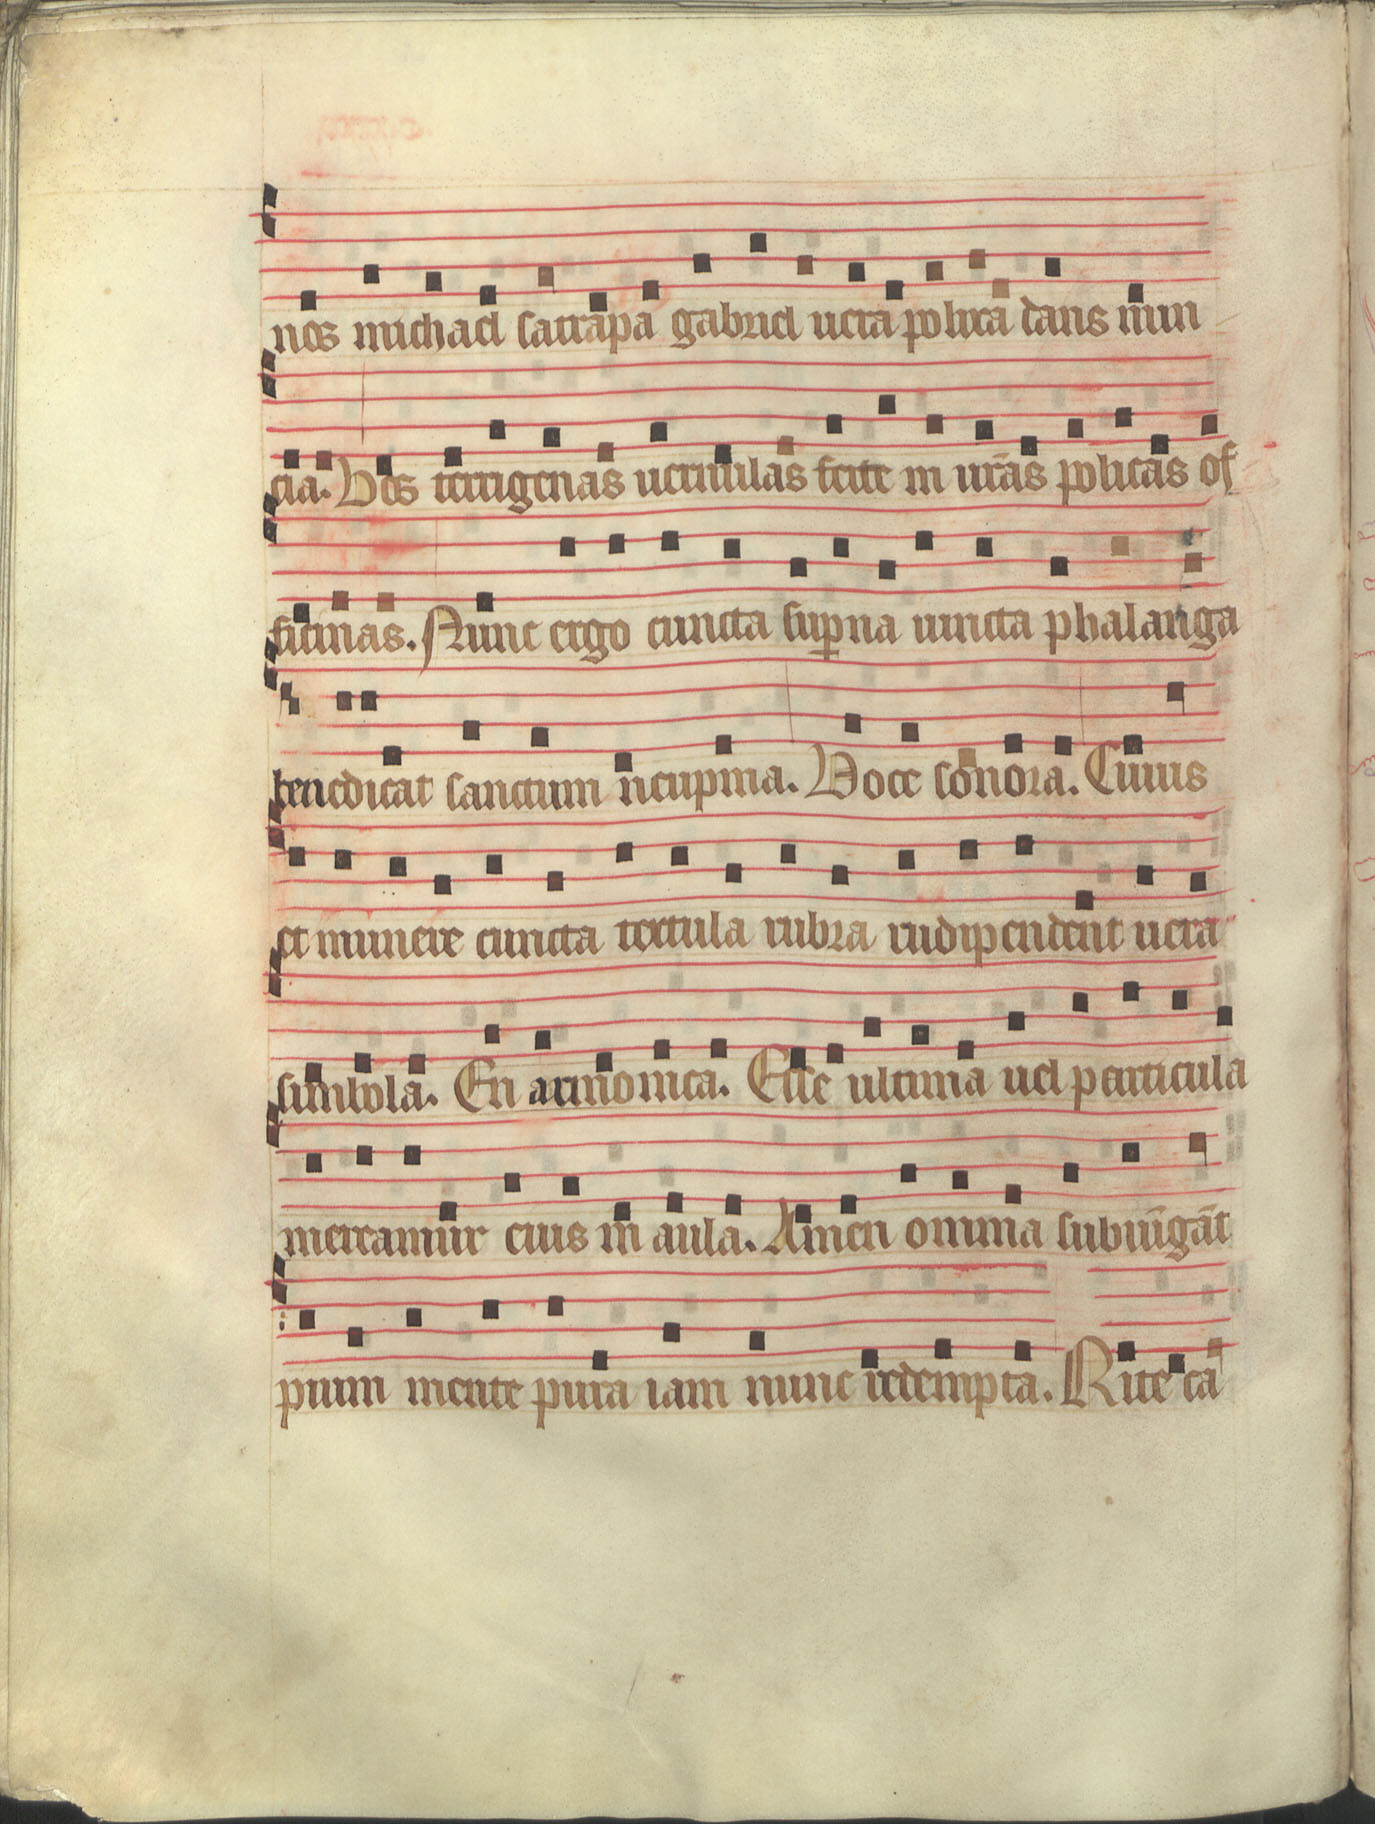 nos michael satrapa gabriel uera polixa dans nun
cia. Vos terrigenas uernulas ferte in ur̄as policas of
ficinas. Nunc ergo cuncta sup̱na iuncta phalanga
benedicat sanctum neupma. Voce sonora. Cuius
et munere cuncta textula rubra rudi pendent uera
simbola. En armonica. Esse ultima uel particula
mereamur eius in aula. Amen omnia subiūgāt
pium mente pura iam nunc redempta. Rite ca